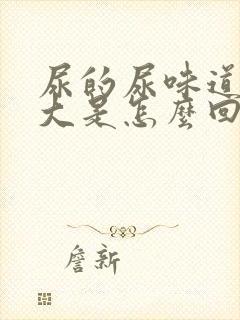 尿的尿味道
大是怎麼回
詹新